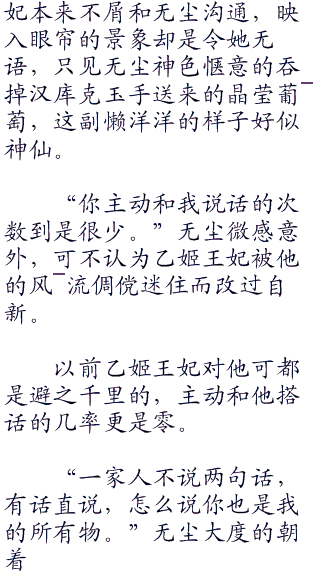 妃本来不屑和无尘沟通，映
入眼帘的景象却是令她无
语，只见无尘神色惬意的吞
掉汉库克玉手送来的晶莹葡¯
萄，这副懒洋洋的样子好似
神仙。
“你主动和我说话的次
数到是很少。”无尘微感意
外，可不认为乙姬王妃被他
的风¯流倜傥迷住而改过自
新。
以前乙姬王妃对他可都
是避之千里的，主动和他搭
话的几率更是零。
“一家人不说两句话，
有话直说，怎么说你也是我
的所有物。”无尘大度的朝
着